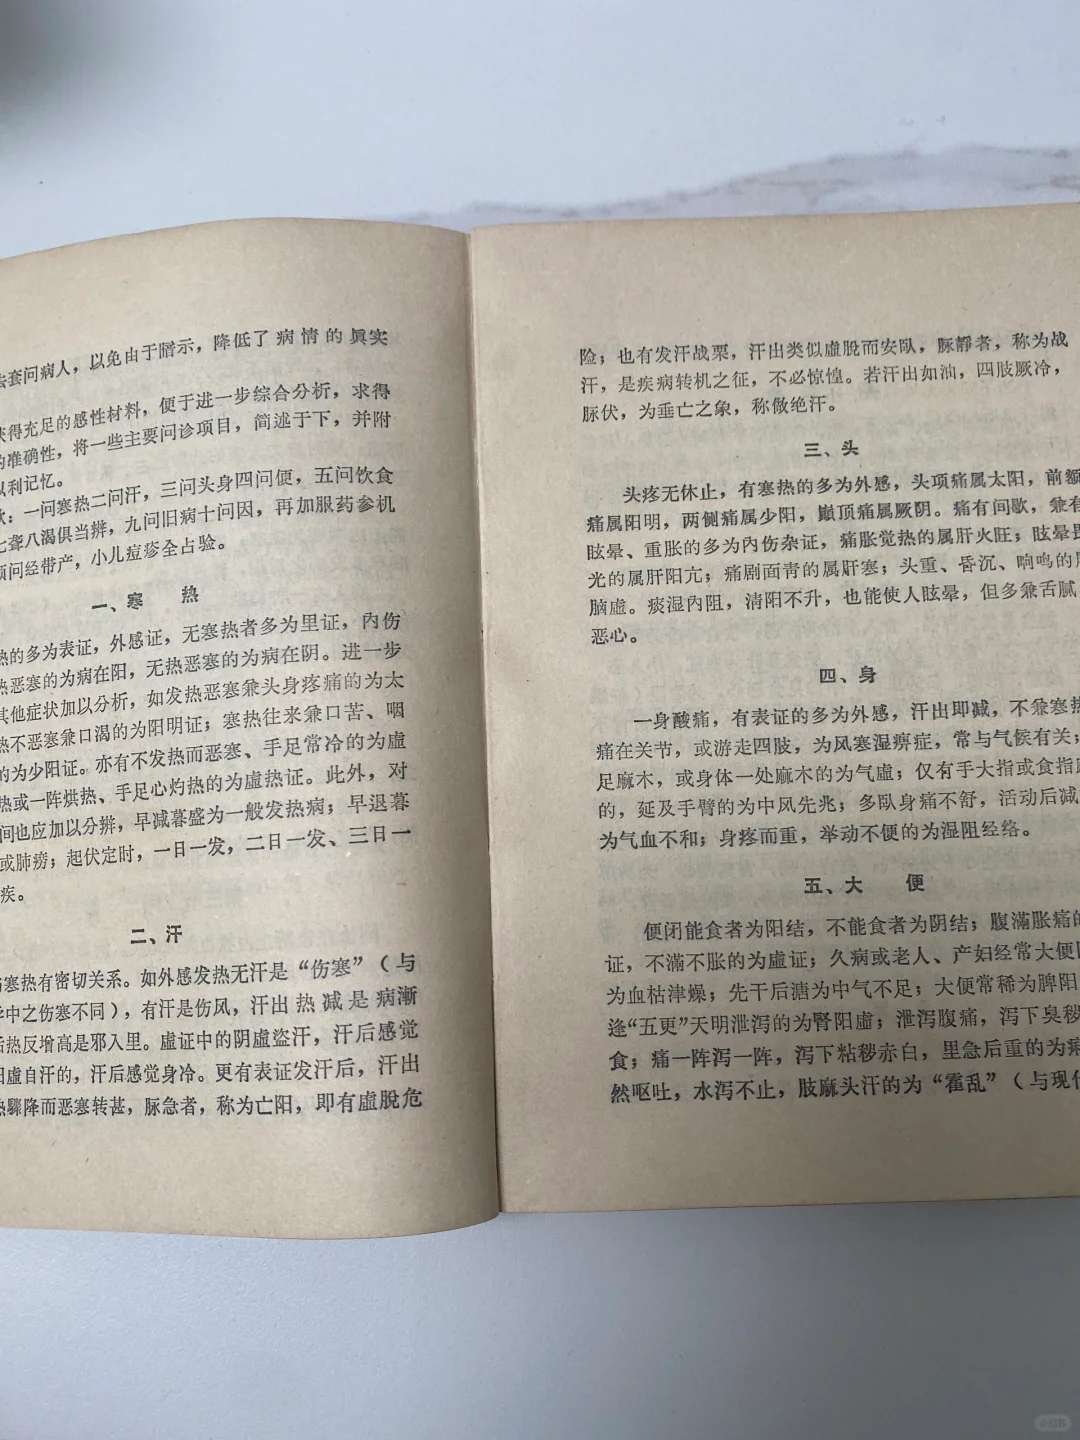 套问病人，以免由于暗示，降低了病情的眞实
获得充足的感性材料，便于进一步综合分析，求得
的准确性，将一些主要问诊项目，简述于下，并附
以利记忆。
：一问寒热二问汗，三问头身四问便，五问饮食
七聋八渴俱当辨，九问旧病十问因，再加服药参机
须问经带产，小儿痘疹全占验。
一、寒　热
热的多为表证，外感证，无寒热者多为里证，內伤
热恶寒的为病在阳，无热恶寒的为病在阴。进一步
其他症状加以分析，如发热恶寒兼头身疼痛的为太
热不恶寒兼口渴的为阳明证；寒热往来兼口苦、咽
的为少阳证。亦有不发热而恶寒、手足常冷的为虛
热或一阵烘热、手足心灼热的为虛热证。此外，对
间也应加以分辨，早减暮盛为一般发热病；早退暮
或肺痨；起伏定时，一日一发，二日一发、三日一
疾。
二、汗
与寒热有密切关系。如外感发热无汗是“伤寒”（与
学中之伤寒不同），有汗是伤风，汗出热减是病漸
后热反增高是邪入里。虛证中的阴虛盗汗，汗后感觉
阳虛自汗的，汗后感觉身冷。更有表证发汗后，汗出
热驟降而恶寒转甚，脉急者，称为亡阳，即有虛脫危
险；也有发汗战栗，汗出类似虛脫而安臥，脉靜者，称为战
汗，是疾病转机之征，不必惊惶。若汗出如油，四肢厥冷，
脉伏，为垂亡之象，称做绝汗。
三、头
头疼无休止，有寒热的多为外感，头项痛属太阳，前额
痛属阳明，两侧痛属少阳，巅顶痛属厥阴。痛有间歇，兼有
眩晕、重胀的多为內伤杂证，痛胀觉热的属肝火旺；眩晕畏
光的属肝阳亢；痛剧面青的属肝寒；头重、昏沉、响鸣的
脑虛。痰湿內阻，清阳不升，也能使人眩晕，但多兼舌腻
恶心。
四、身
一身酸痛，有表证的多为外感，汗出即减，不兼寒热
痛在关节，或游走四肢，为风寒湿痹症，常与气候有关；
足麻木，或身体一处麻木的为气虛；仅有手大指或食指
的，延及手臂的为中风先兆；多臥身痛不舒，活动后减
为气血不和；身疼而重，举动不便的为湿阻经络。
五、大　便
便闭能食者为阳结，不能食者为阴结；腹滿胀痛的
证，不滿不胀的为虛证；久病或老人、产妇经常大便
为血枯津燥；先干后溏为中气不足；大便常稀为脾阳
逢“五更”天明泄泻的为腎阳虛；泄泻腹痛，泻下臭秽
食；痛一阵泻一阵，泻下粘秽赤白，里急后重的为痢
然呕吐，水泻不止，肢麻头汗的为“霍乱”（与现代